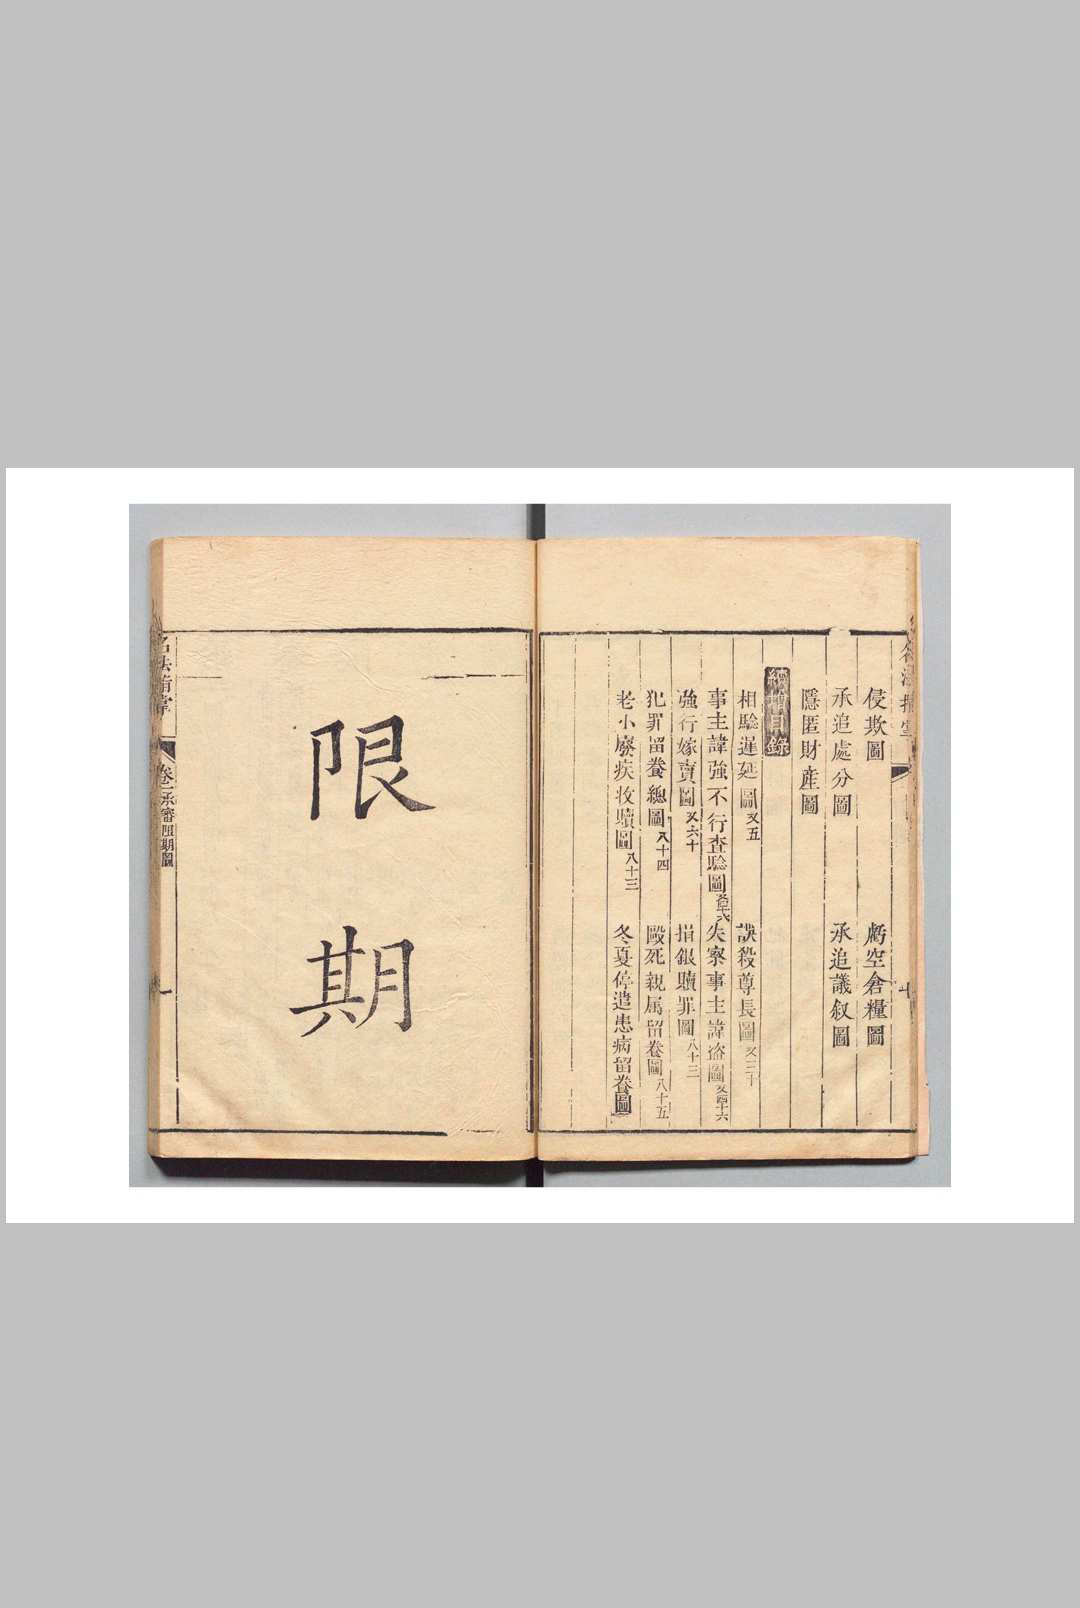 侵欺圖
虧空倉糧圖
承追處分圖
承追議叙圖
隱匿財產圖
續增目錄
相驗遲延圖又五
誤殺尊長圖又三十
事主諱強不行查驗圖
失察事主諱盜圖
強行嫁賣圖又六十
捐銀贖罪圖八十三
犯罪留養總圖八十四
毆死親属留養圖八十五
老小廢疾收贖圖八十三
冬夏停遣患病留養圖
限期
名法指掌
卷一承審限期圖
一